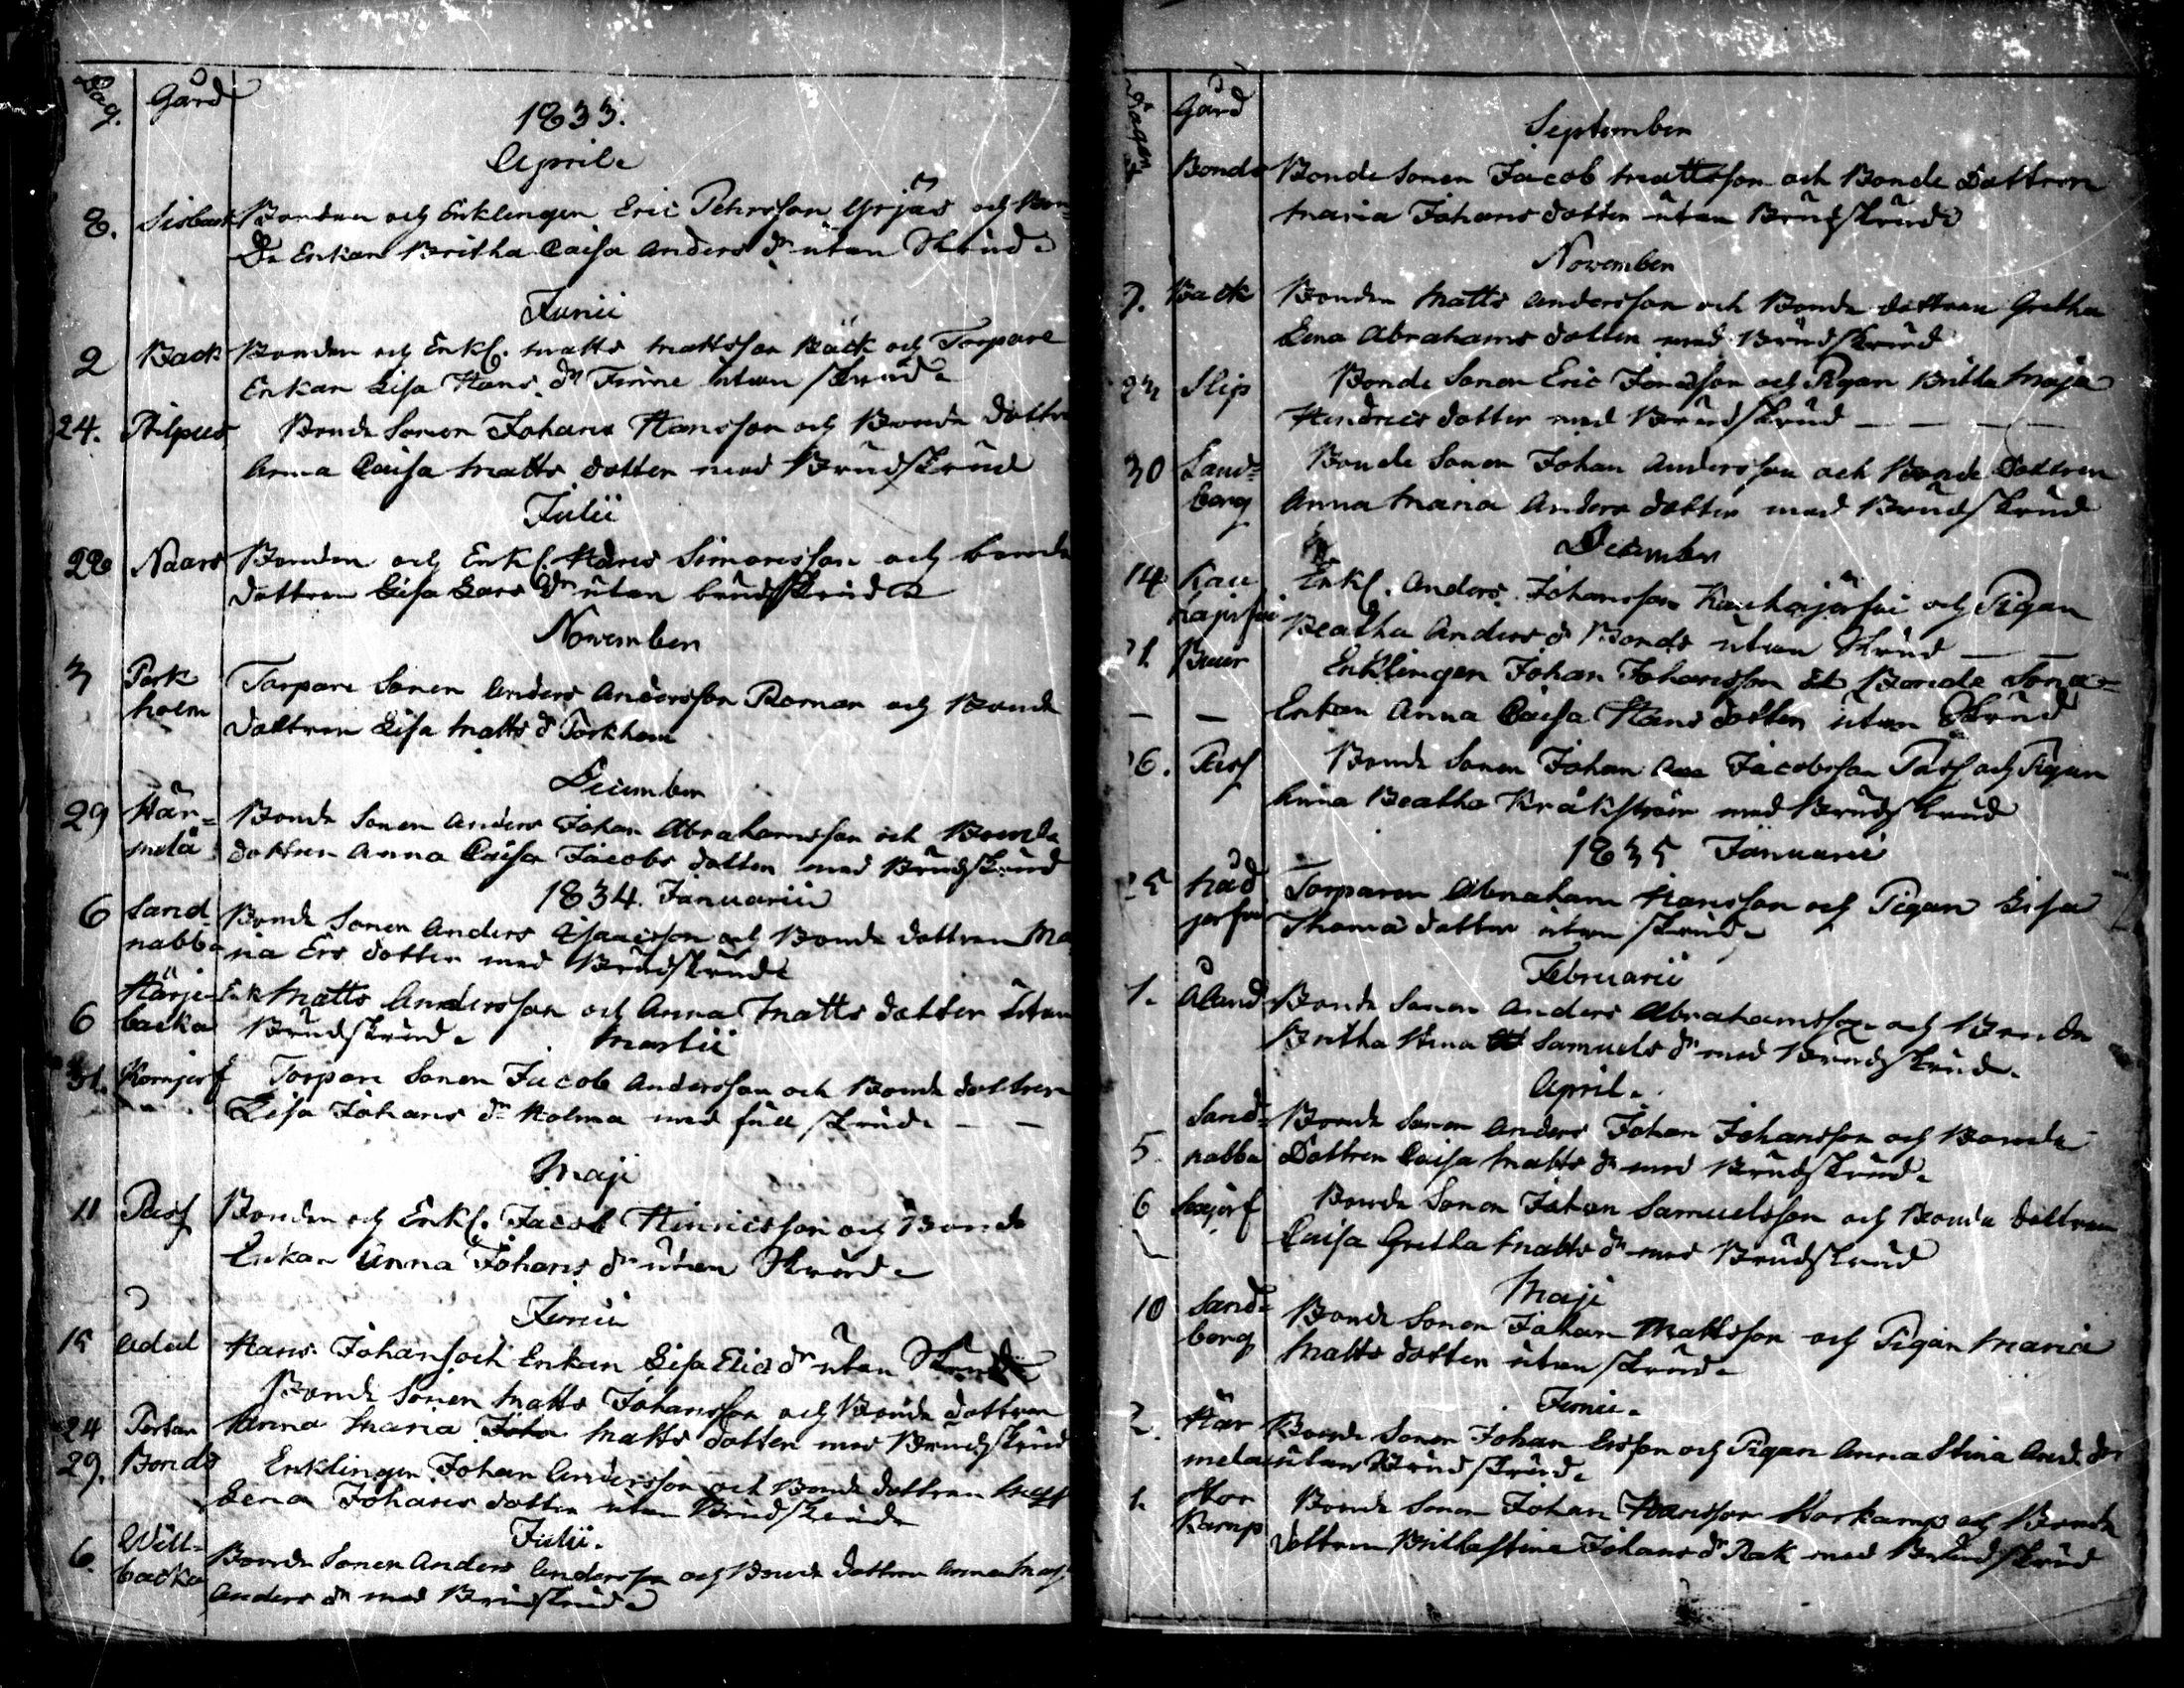 Dag. Gård
1833.
April
8. Sisback Bonden och Enklingen Eric Pehrsson Grjas och Bon-
De Enkan Britha Caisa Anders dr utan Skrud
Junii
2 Back Bonden och Enkl. Matts Mattsson Bäck och Torpare
Enkan Lisa Hans dr Finne utan skrud
24. Philpus Bonde Sonen Johan Hansson och Bonde dottre
Anna Caisa Matts dotter med Brudskrud
Julii
28 Naars Bonden och Enkl. Hans Simonsson och bonde
dottren Lisa Lars dr utan brudskrud
November
3 Pork
holm Torpare Sonen Anders Andersson Roman och Bonde
dottren Lisa Matts dr Porkholm
December
29 Här-
melä Bonde Sonen Anders Johan Abrahamsson och Bonde
dottren Anna Caisa Jacobs dotter med Brudskrud
1834. Januarii
6 Sand-
nabba Bonde Sonen Anders Isaacsson och Bonde dottren Ma
ria Ers dotter med Brudskrud
6 Härje-
backa Enk Matts Andersson och Anna Matts dotter utan
Brudskrud
Martii
31. Kornjerf Torpare Sonen Jacob Andersson och Bonde dottren
Lisa Johans dr Holma med full skrud
Maji
11 Pass Bonden och Enkl. Jacob Hinricsson och Bonde
Enkan Anna Johans dr utan Skrud
Junii
15 Hans Johans och Enkan Lisa Elias dr utan Skrud
Bonde Sonen Matts Johansson och Bonde dottren
24 Anna Maria Matts dotter med Brudskrud
29. Bonds Enklingen Johan Andersson och Bonde dottren
Lena Johans dotter utan Brudskrud
Julii.
6. Will-
backa Bonde Sonen Anders Andersson och Bonde dottren Anna Maj
Anders dr med Brudskrud
Dagen Gård
September
Bonds Bonde Sonen Jacob Mattsson och Bonde Dottren
Maria Johans dotter utan Brudskrud
November
9. Back Bonden Matts Andersson och Bonde dottren Gretha
Lena Abrahams dotter med Brudskrud
23 Slip Bonde Sonen Eric Jonasson och Pigan Britha Maja
Hindrics dotter med Brudskrud
30 Sand-
berg Bonde Sonen Johan Andersson och Bonde Dottren
Anna Maria Anders dotter med Brudskrud
December
14 Kau
hajerfvi Enkl. Anders Johansson Kauhajärfvi och Pigan
Beatha Anders dr Bonds utan Skrud
21. Buur Enklingen Johan Johansson Bonde Sona-
Enkan Anna Caisa Hans dotter utan Skrud
26. Pass Bonde Sonen Johan Jacobsson Pass och Pigan
Anna Beatha Kråkström med Brudskrud
1835 Januarii
25 Nåd
jerfvi Torparen Abraham Hansson och Pigan Lisa
Thomä dotter utan skrud
Februarii
1. Åland Bonde Sonen Anders Abrahamsson och Bonde
Britha Stina Samuels dr med Brudskrud
April.
5. Sand-
nabba Bonde Sonen Anders Johan Johansson och Bonde
Dottren Caisa Matts dr med Brudskrud
6 Bonde Sonen Johan Samuelsson och Bonde dottren
Caisa Gretha Matts dr med Brudskrud
Maji
10 Sand-
berg Bonde Sonen Johan Mattsson och Pigan Maria
Matts dotter utan skrud
Junii.
2. Här
mela Bonde Sonen Johan Ersson och Pigan Anna Stina And. dr
utan Brudskrud
1. Stor
Kamp Bonde Sonen Johan Hansson Storkamp och Bonde
dottren Britha Stina Johans dr Rak med Brudskrud